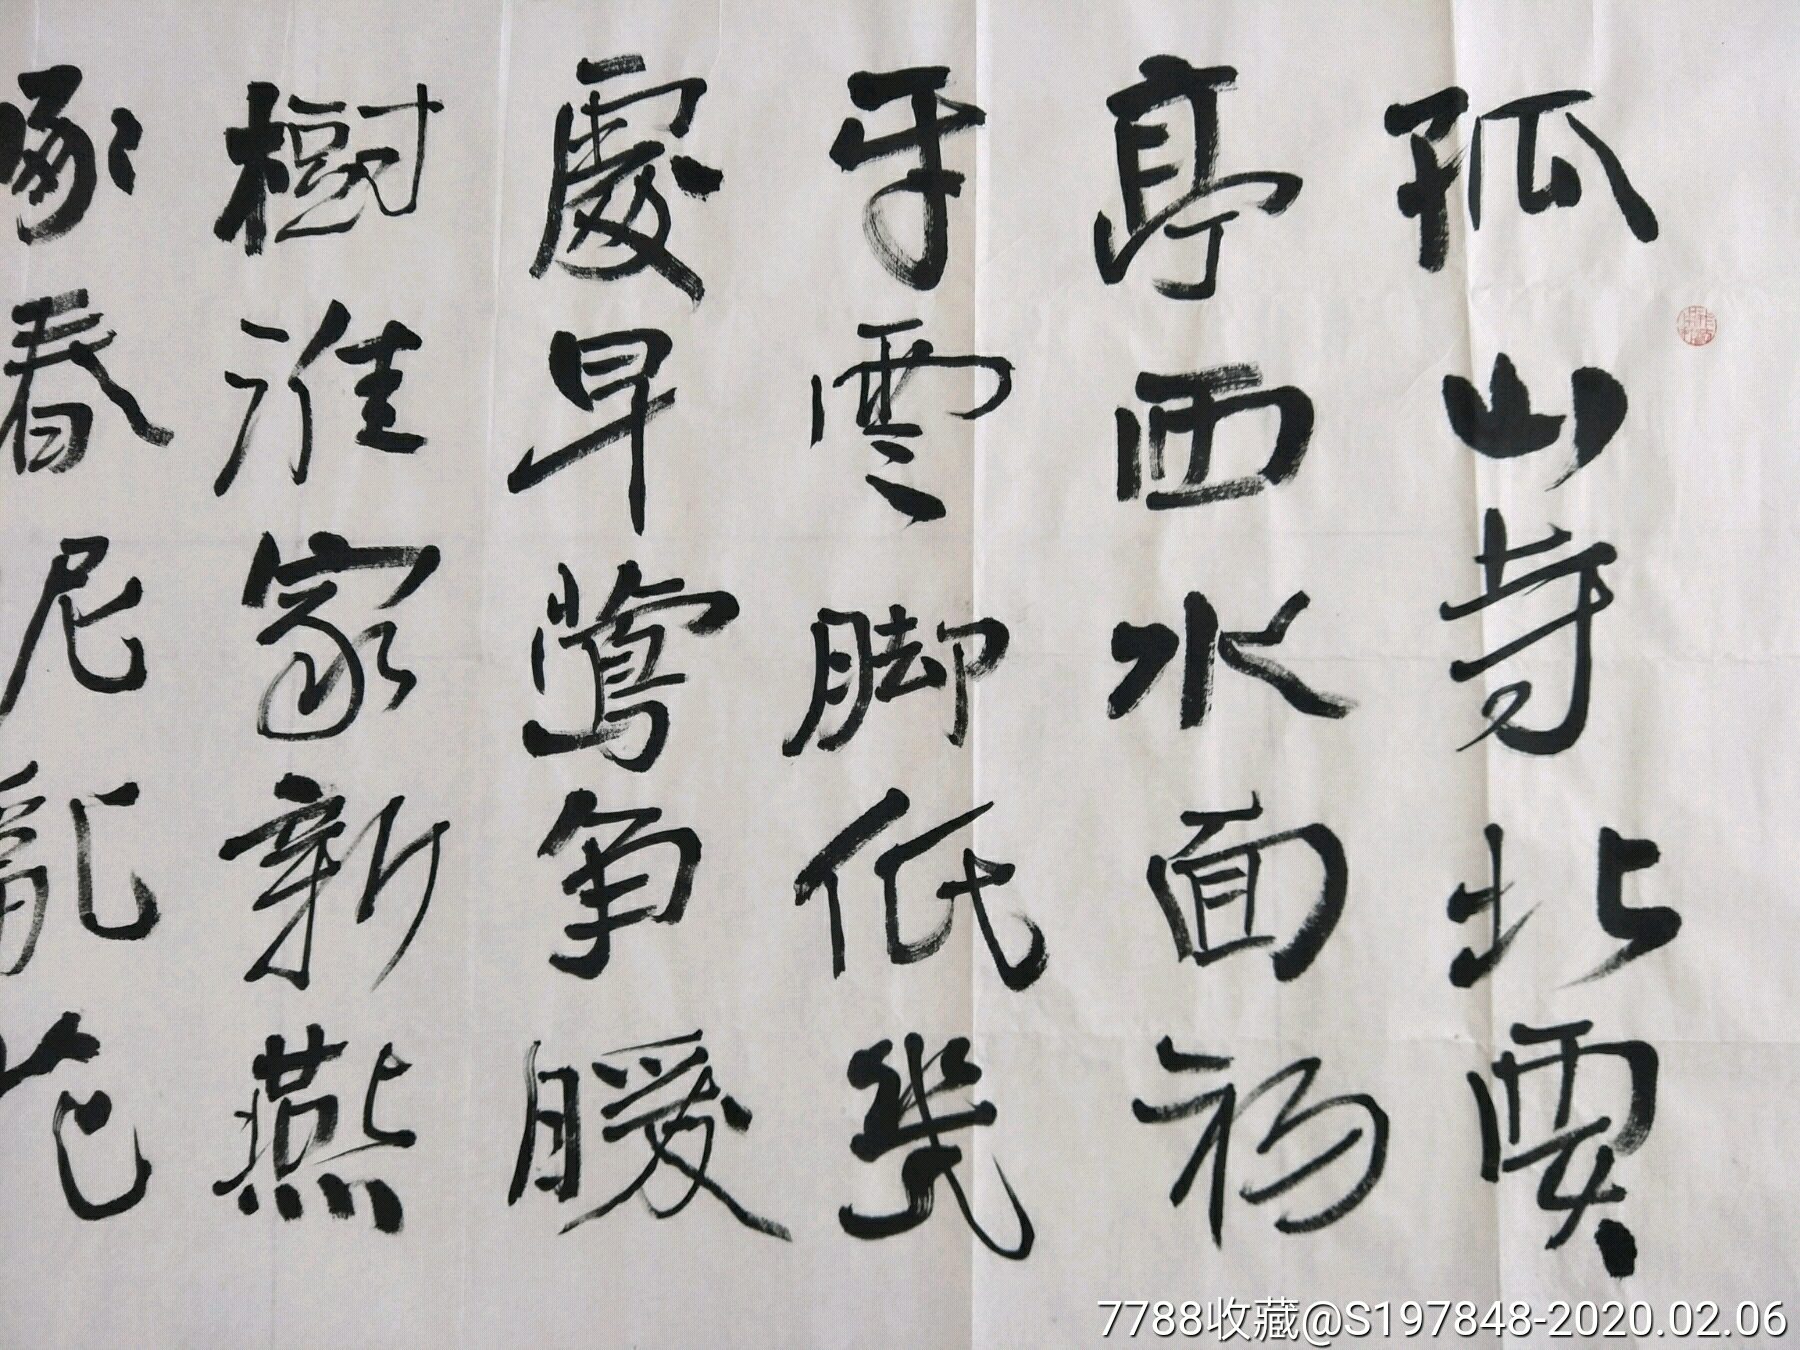 孤山寺北贾
亭西水面初
平雲脚低幾
處早鶯争暖
樹谁家新燕
啄春泥亂花
7788收藏@S197848-2020.02.06